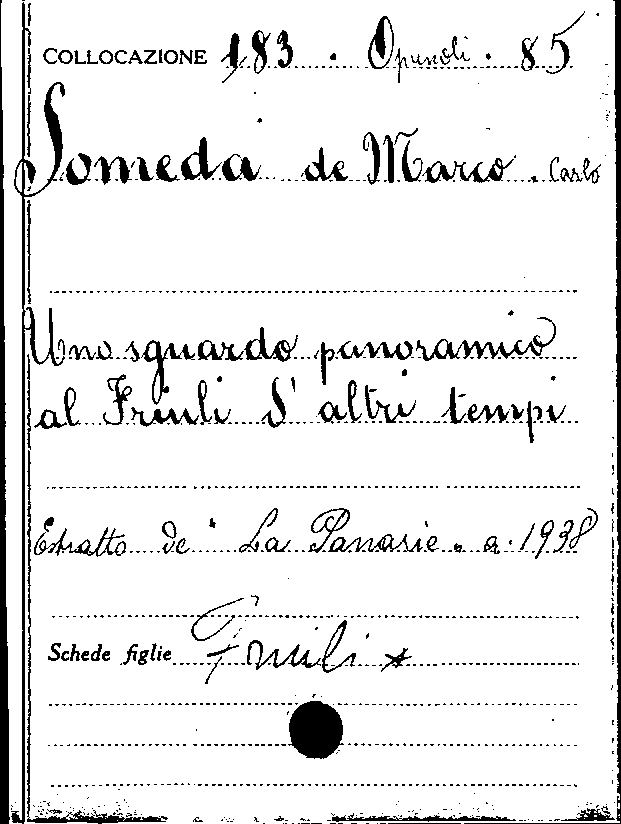 COLLOCAZIONE 183 . Opuscoli . 85
Someda de Marco . Carlo
Uno sguardo panoramico
al Friuli d'altri tempi
Estratto de "La Panarie" a. 1938
Schede figlie Friuli *